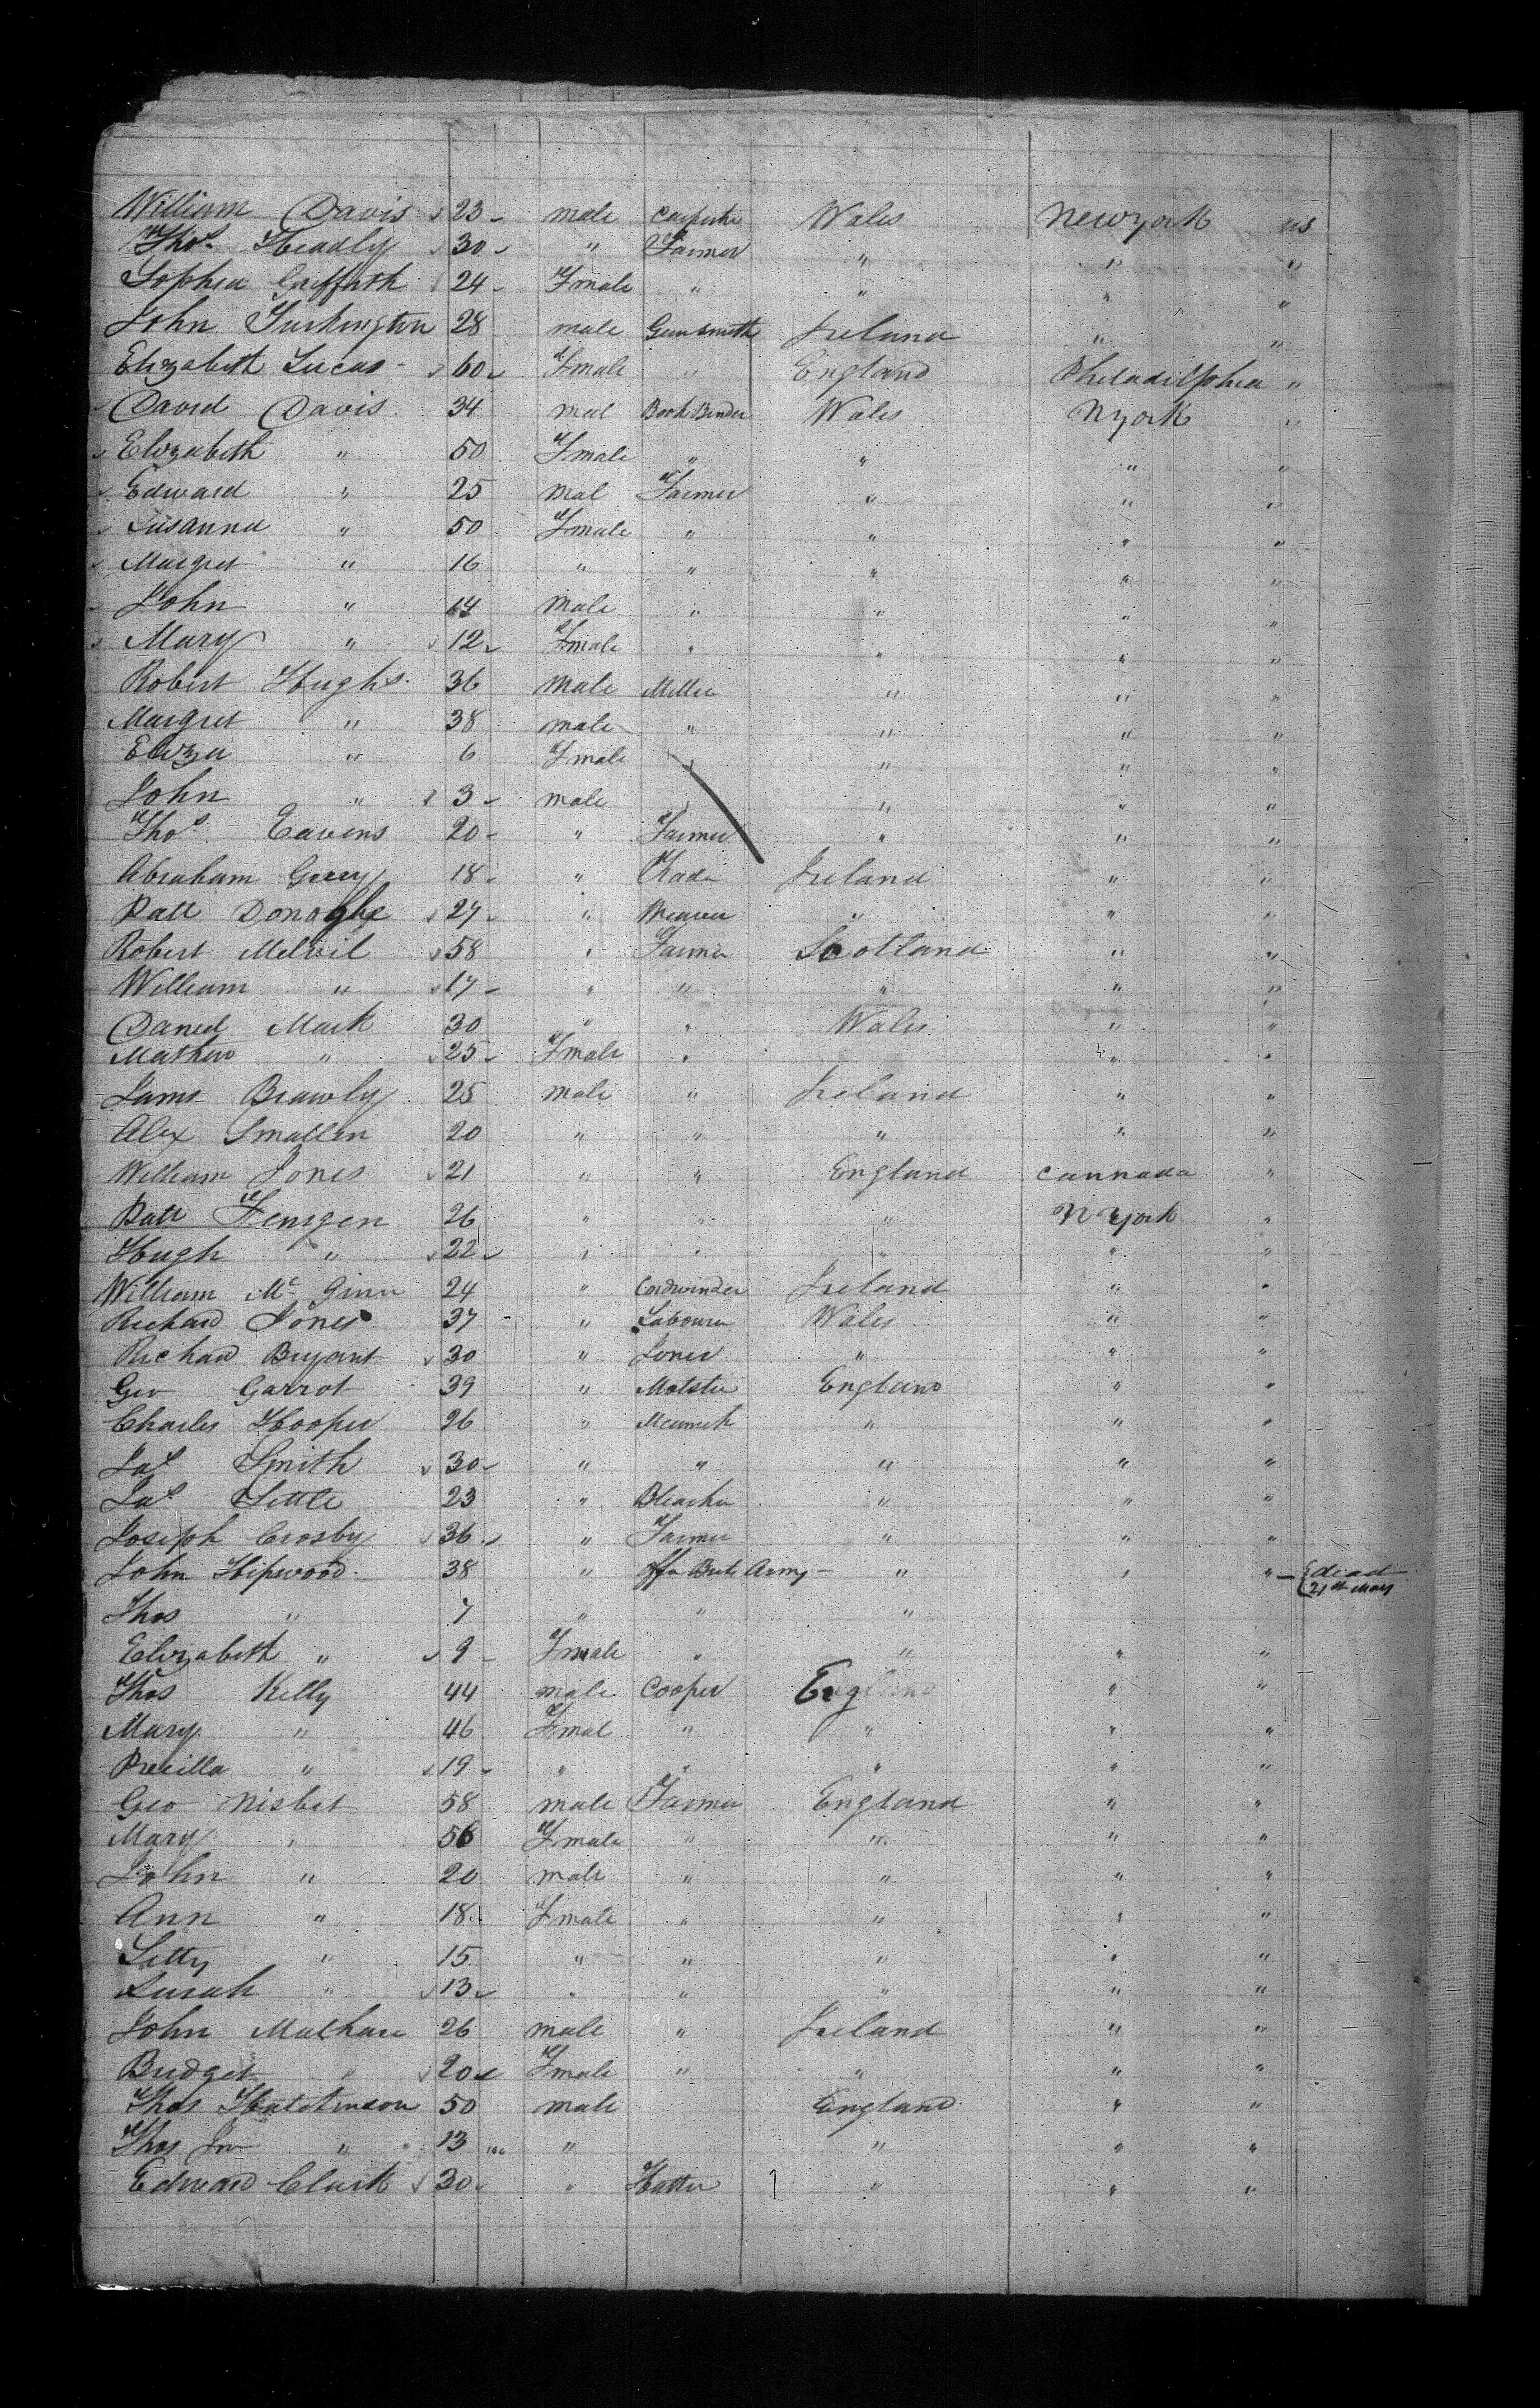 William Davis 23 male Carpenter Wales New york us
Thos Headly 30 " Farmer " " "
Sophia Griffith 24 Fmale " " " "
John Turkington 28 male Gunsmith Ireland " "
Elizabeth Lucas 60 Fmale " England Philadilphia "
David Davis 34 mal Book Binder Wales N york "
Elizabeth " 50 Fmale " " " "
Edward " 25 mal Farmer " " "
Susanna " 50 Fmale " " " "
Margret " 16 " " " " "
John " 14 male " " " "
Mary " 12 Fmale " " " "
Robert Hughs 36 male Miller " " "
Margret " 38 male " " " "
Eliza " 6 Fmale " " " "
John " 3 male " " " "
Thos Eavens 20 " Farmer " " "
Abraham Grey 18 " Trader Ireland " "
Patt Donoghe 27 " Weaver " " "
Robert Melvil 58 " Farmer Scotland " "
William " 17 " " " " "
Daniel Mark 30 " " Wales " "
Mathew " 25 Fmale " " "
James Brawly 25 male " Ireland " "
Alex Smallen 20 " " " " "
William Jones 21 " " England Cannada "
Patt 26 " " " N York "
Hugh " 22 " " " " "
William Mc Ginn 24 " Cordwinder Ireland " "
Richard Jones 37 " Labourer Wales " "
Richard Bryant 30 " " " "
Geo Garrot 39 " Malster England " "
Charles Hooper 26 " " " "
Jas Smith 30 " " " " "
Jas Little 23 " Bleacher " " "
Joseph Crosby 36 " Farmer " " "
John Hipwood 38 " offr Brit Army " " " died
21st May
Thos " 7 " " "
Elizabeth " 9 Fmale " " " "
Thos Kelly 44 male Cooper England " "
Mary " 46 Fmal " " " "
Precilla " 19 " " " " "
Geo Nisbet 58 male Farmer England " "
Mary " 56 Fmale " " " "
John " 20 male " " " "
Ann " 18 Fmale " " " "
Letty " 15 " " " " "
Sarah " 13 " " " " "
John 26 male " Ireland " "
Bridget " 20 Fmale " " " "
Thos Hutchinson 50 male England " "
Thos Jnr " 13 " " " "
Edward Clark 30 " Hatter " " "